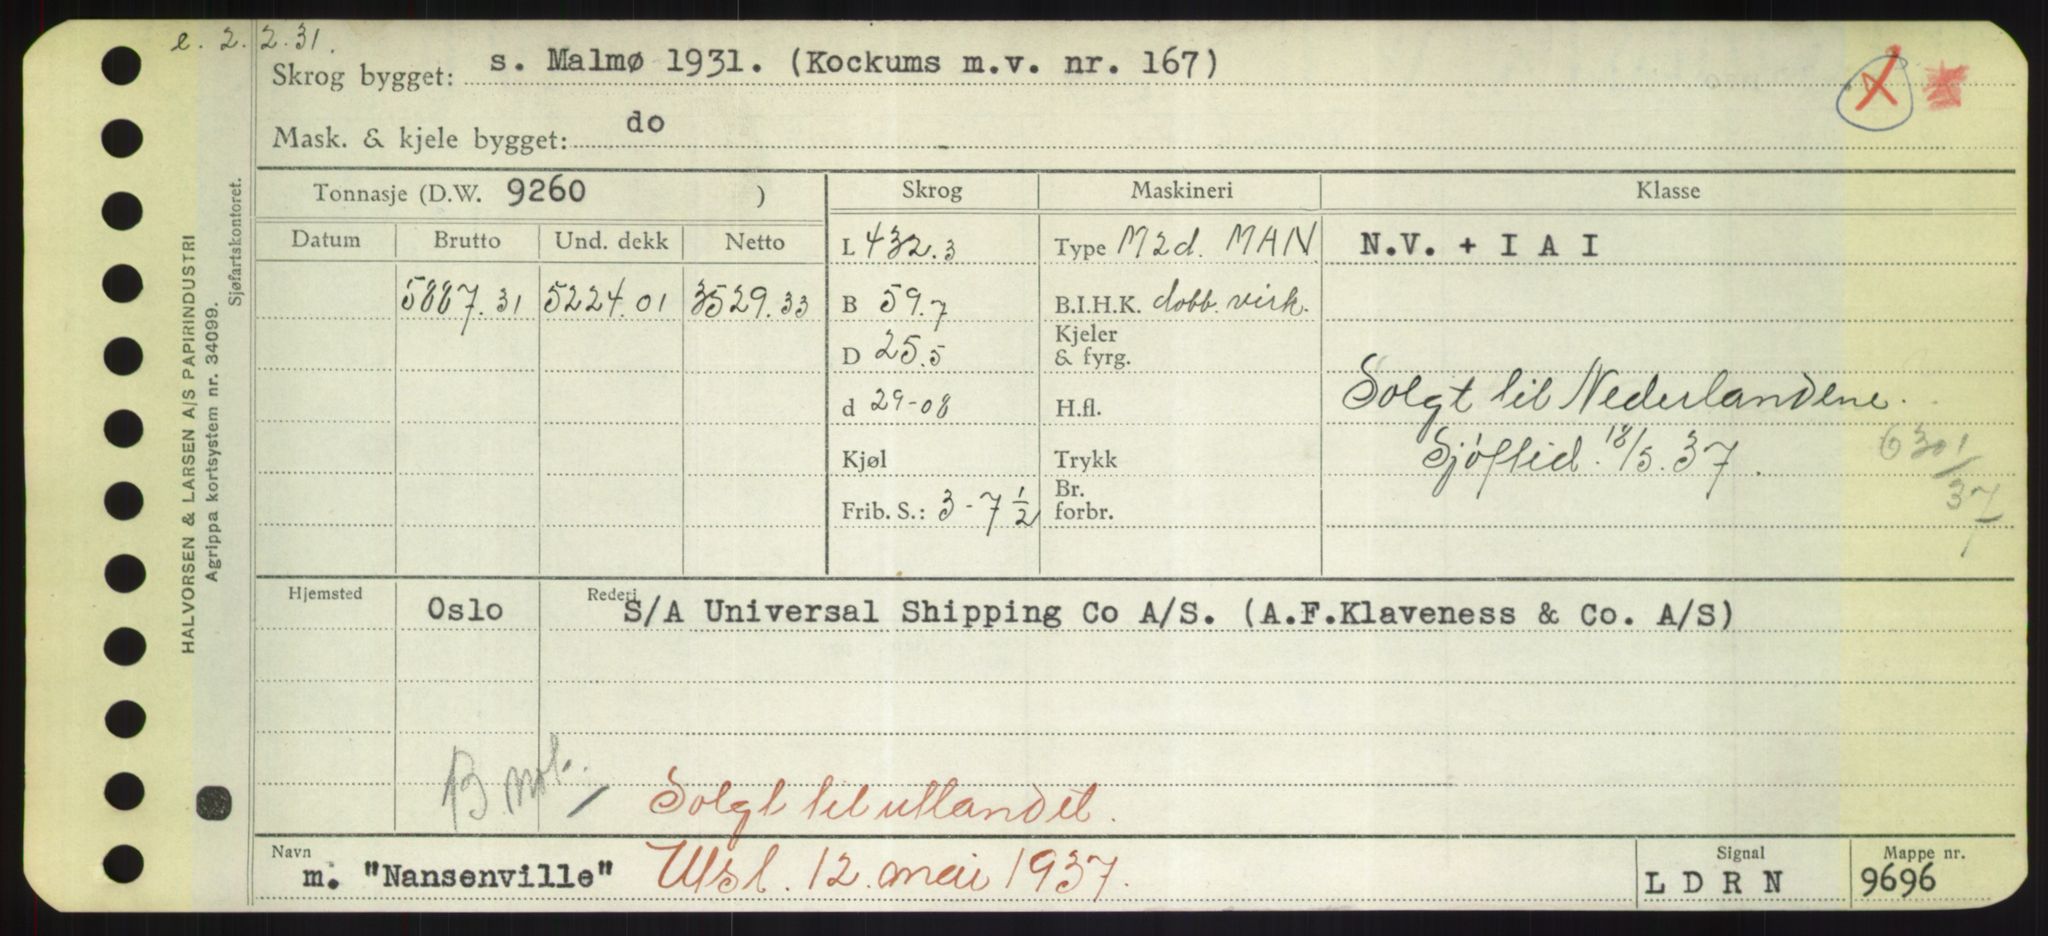 e. 2.2.31.
Skrog bygget: s. Malmø 1931. (Kockums m.v. nr. 167)
Mask. & kjele bygget: do
Tonnasje (D.W. 9260 ) Skrog Maskineri Klasse
Datum Brutto Und. dekk Netto L 432.3 Type M2d. MAN N.V. + I A I
5887.31 5224.01 3529.33 B 59.7 B.I.H.K. dobb. virk.
D 25.5 Kjeler & fyrg.
d 29-08 H.fl. Solgt til Nederlandene.
Kjøl Trykk Sjöftid. 18/5.37. 6301/37
Frib. S.: 3 - 7 1/2 Br. forbr.
Hjemsted Oslo Rederi S/A Universal Shipping Co A/S. (A.F.Klaveness & Co. A/S)
B. not.
Solgt til utlandet.
Navn m. "Nansenville" Utsl. 12. mai 1937. Signal LDRN Mappe nr. 9696
HALVORSEN & LARSEN A/S PAPIRINDUSTRI
Agrippa kortsystem nr. 34099.
Sjøfartskontoret.